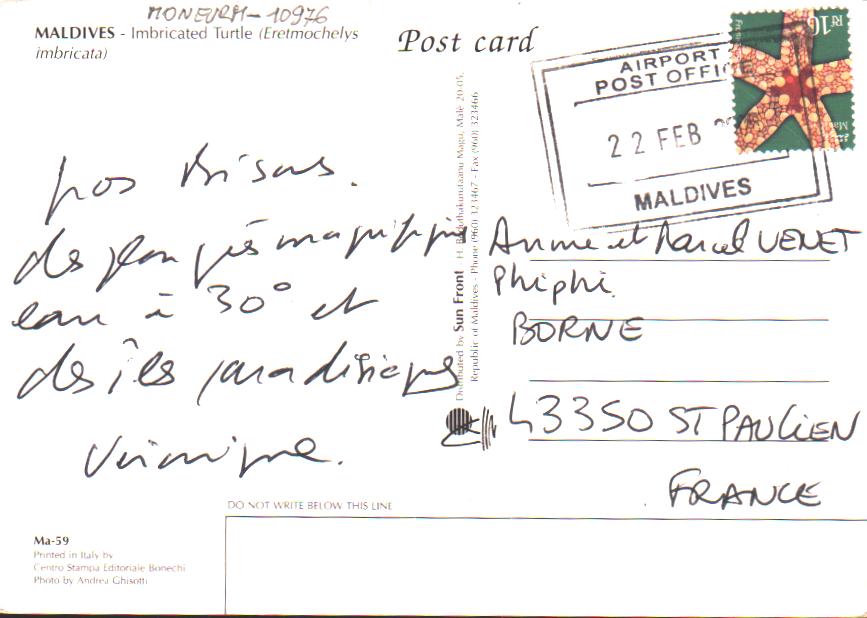 MONEURM-10976
MALDIVES - Imbricated Turtle (Eretmochelys
imbricata)
Post card
AIRPORT
POST OFFICE
22 FEB
MALDIVES
Rf 10
gros bisous.
des plongées magnifiques
eau à 30° et
des îles paradisiaques
Véronique.
Distributed by Sun Front H.
Republic of Maldives - Phone (960) 323467 - Fax (960) 323466
Anne et Marcel VENET
Phiphi
BORNE
43350 ST PAULIEN
FRANCE
DO NOT WRITE BELOW THIS LINE
Ma-59
Printed in Italy by
Centro Stampa Editoriale Bonechi
Photo by Andrea Ghisotti